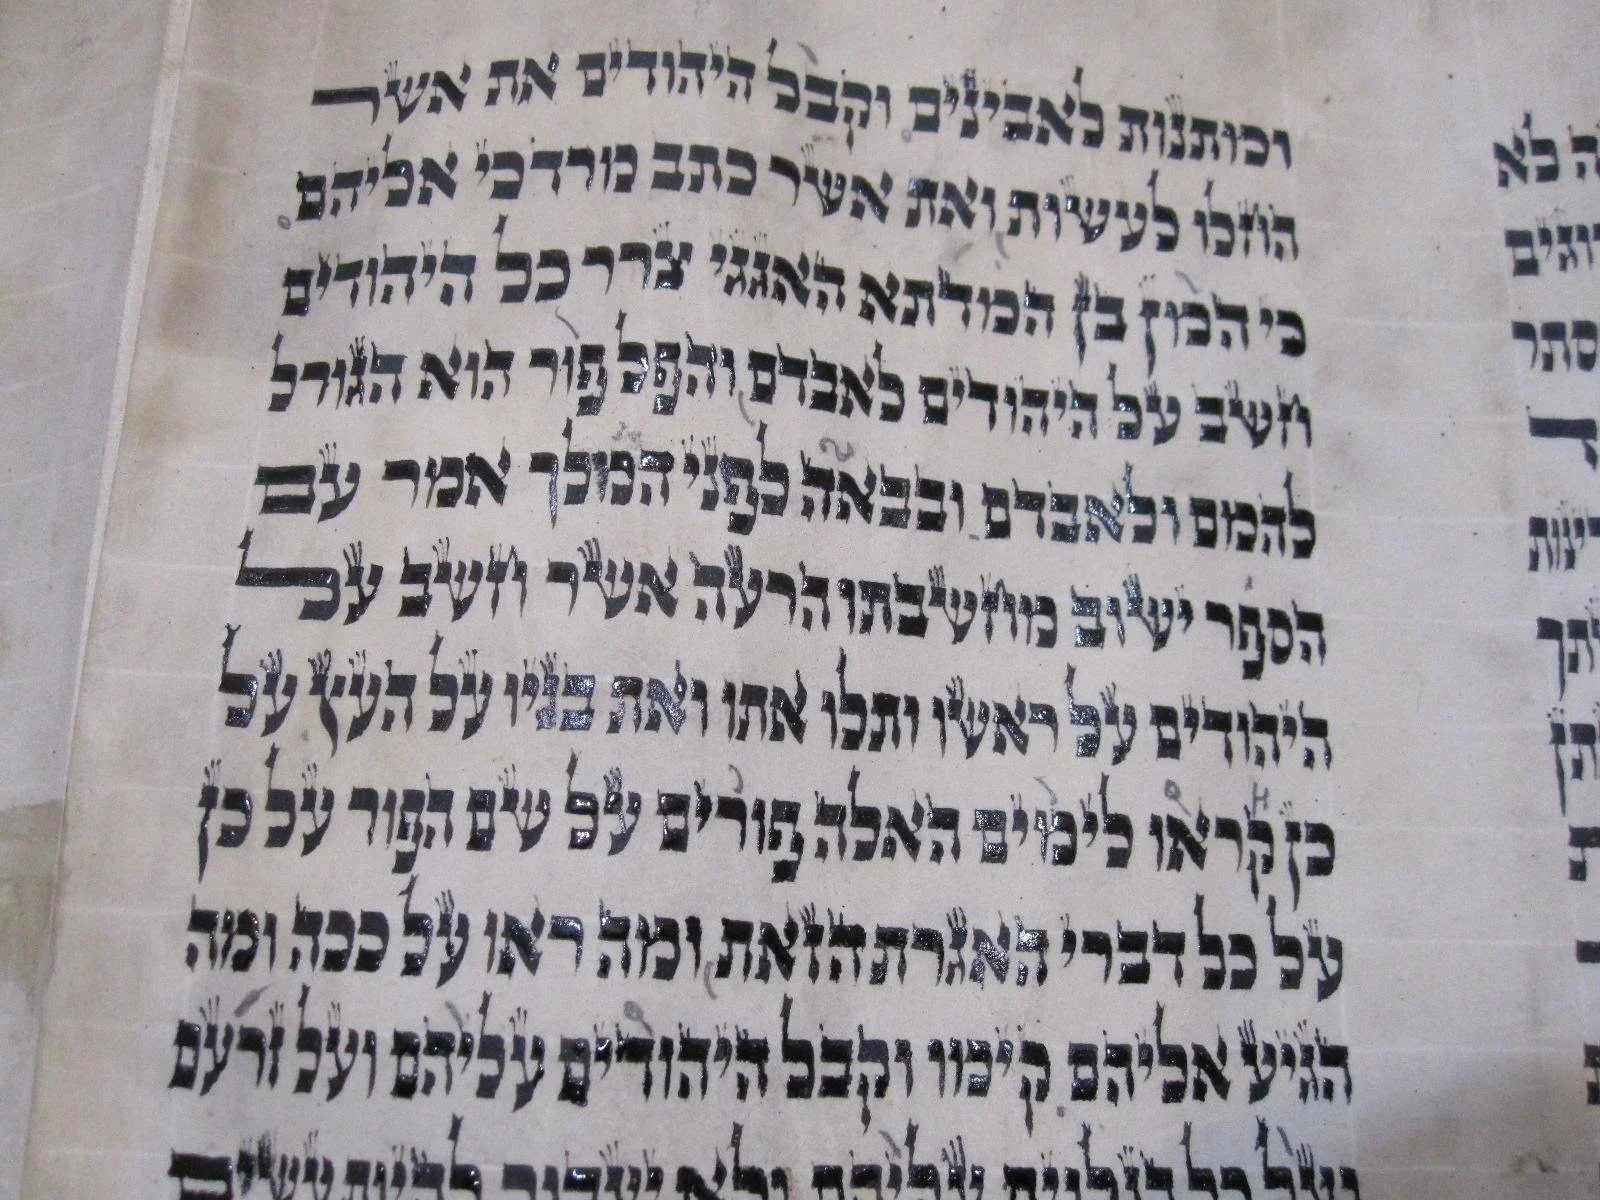 לא
סתר
ומתנות לאבינים וקבל היהודים את אשר
החלו לעשות ואת אשר כתב מרדכי אליהם
כי המן בן המדתא האגגי צרר כל היהודים
חשב על היהודים לאבדם והפל פור הוא הגורל
להמם ולאבדם ובבאה לפני המלך אמר עם
הספר ישוב מחשבתו הרעה אשר חשב על
היהודים על ראשו ותלו אתו ואת בניו על העץ על
כן קראו לימים האלה פורים על שם הפור על כן
על כל דברי האגרת הזאת ומה ראו על ככה ומה
הגיע אליהם קימו וקבל היהודים עליהם ועל זרעם
ועל כל הנלוים עליהם ולא יעבור להיות עשים